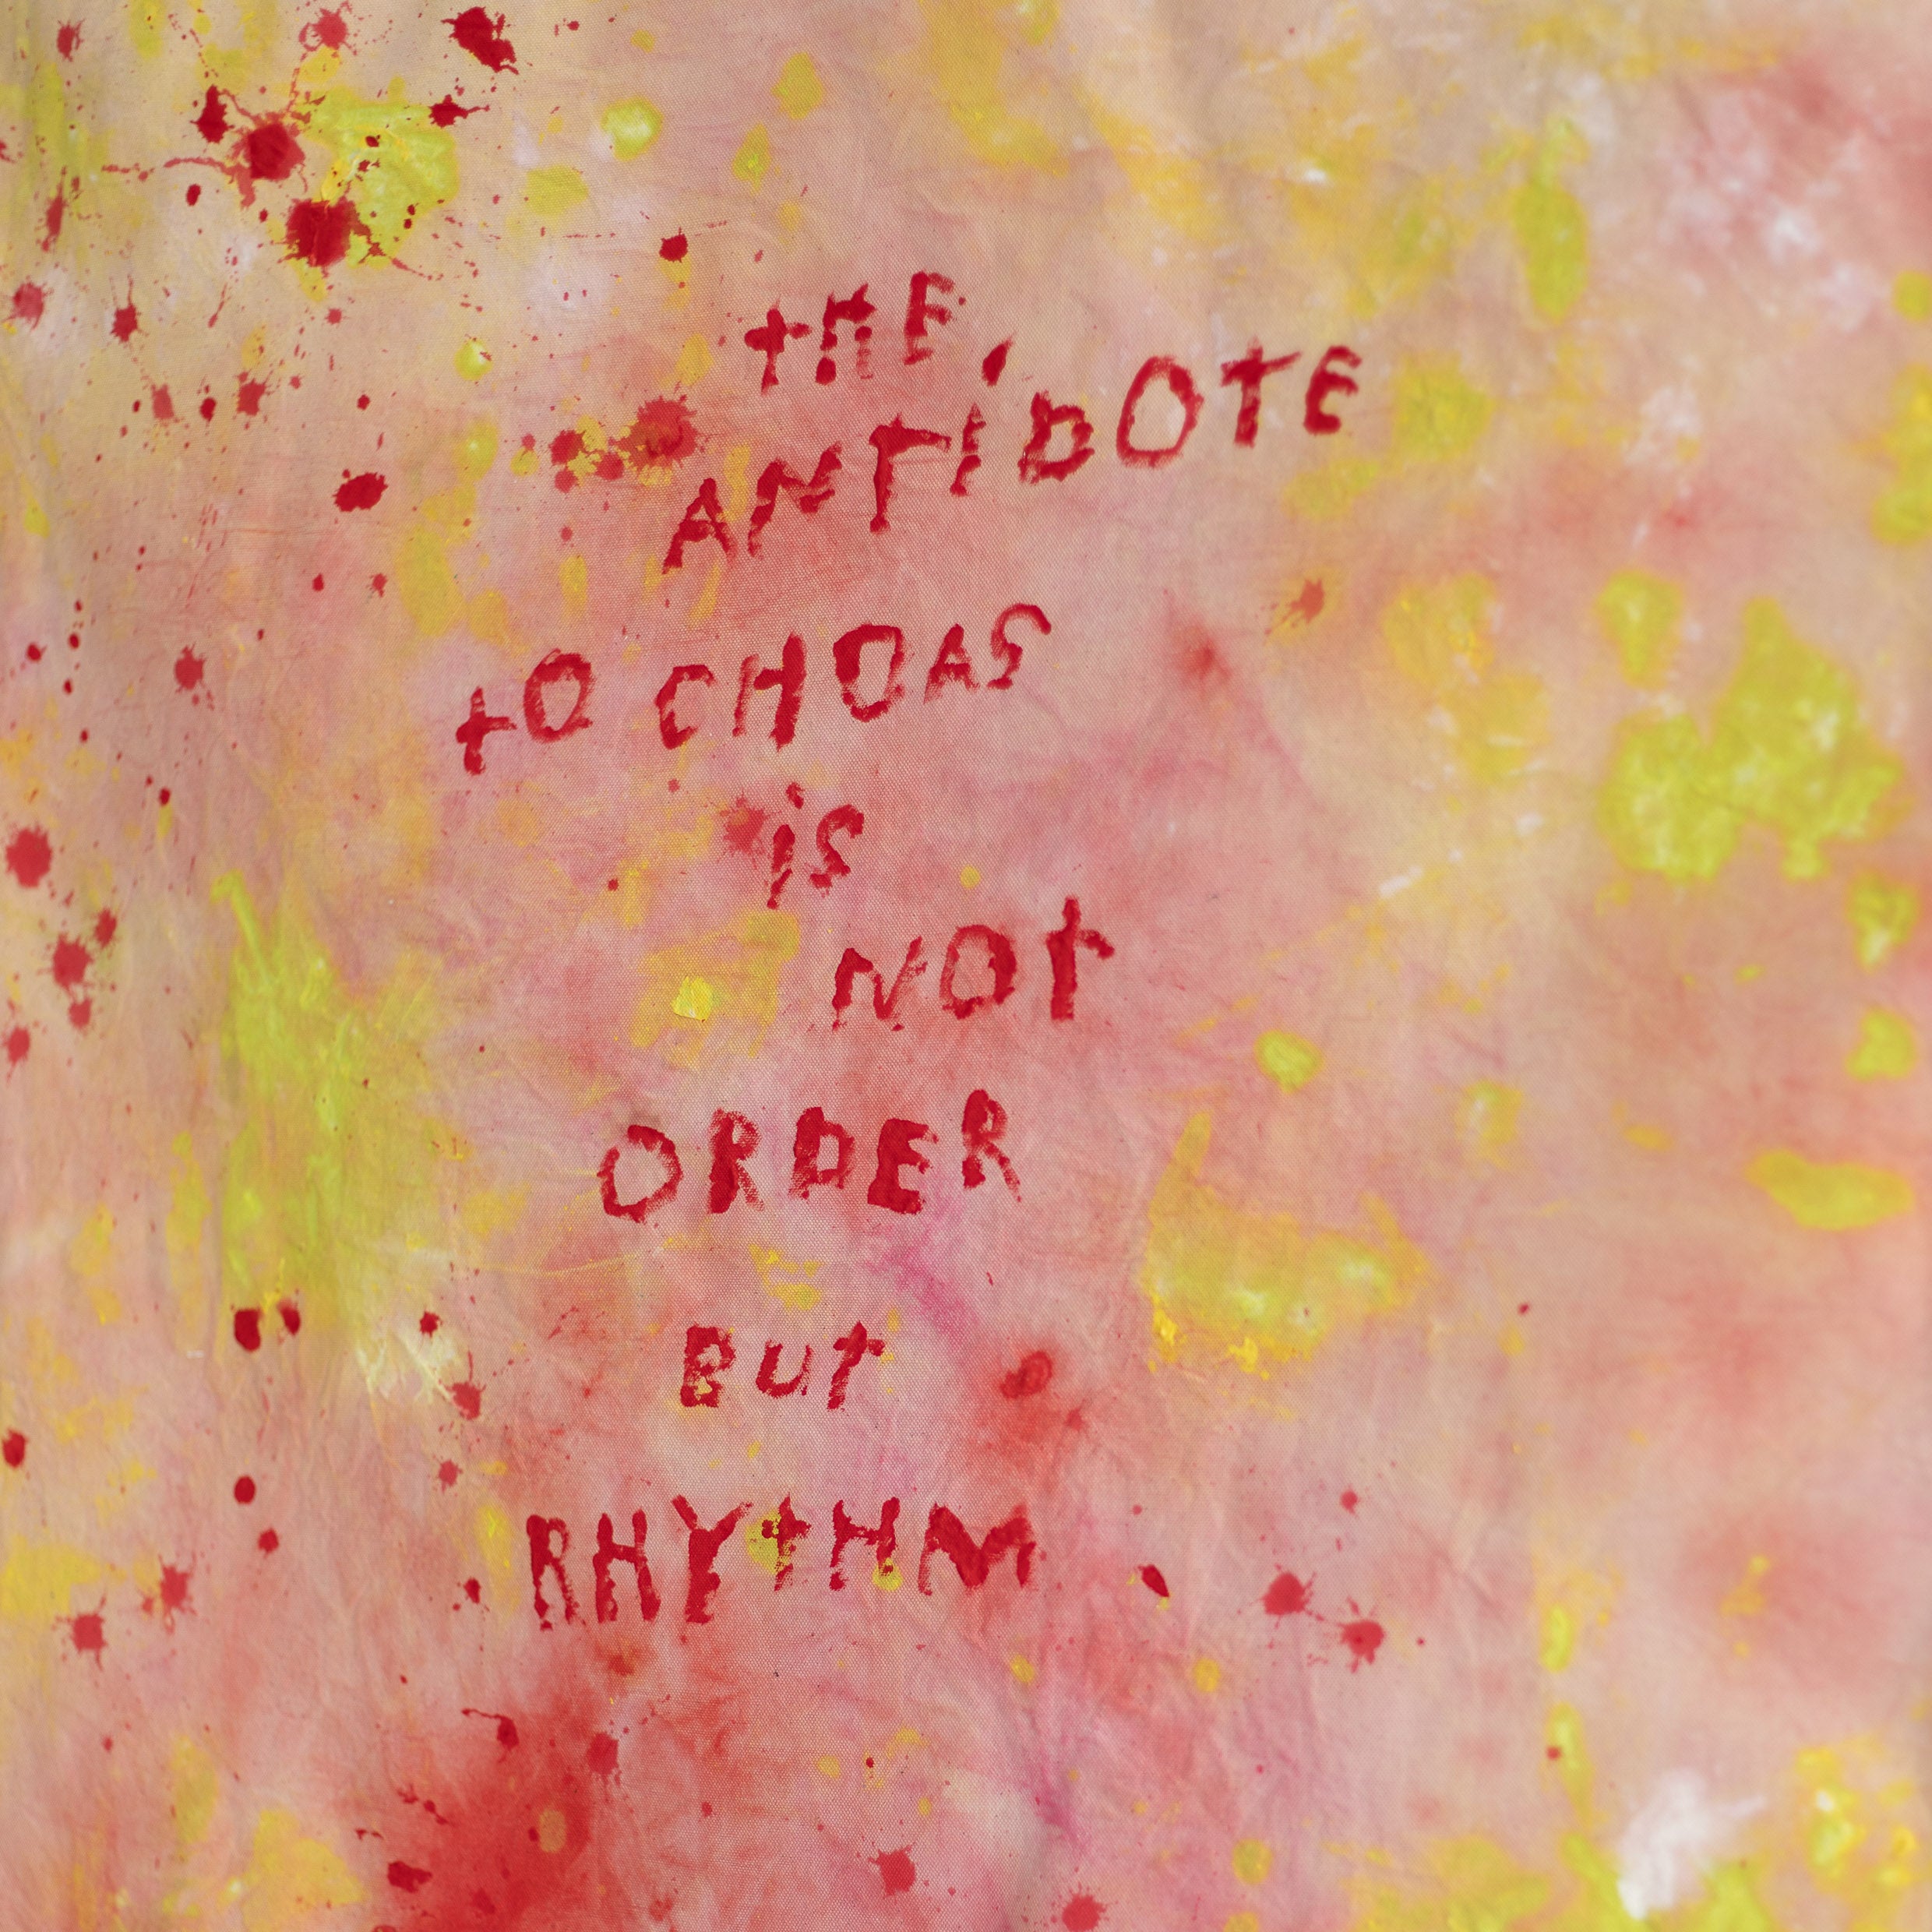 tHE
ANTIDOTE
tO CHOAS
is
NOt
ORDER
But
RHYtHM